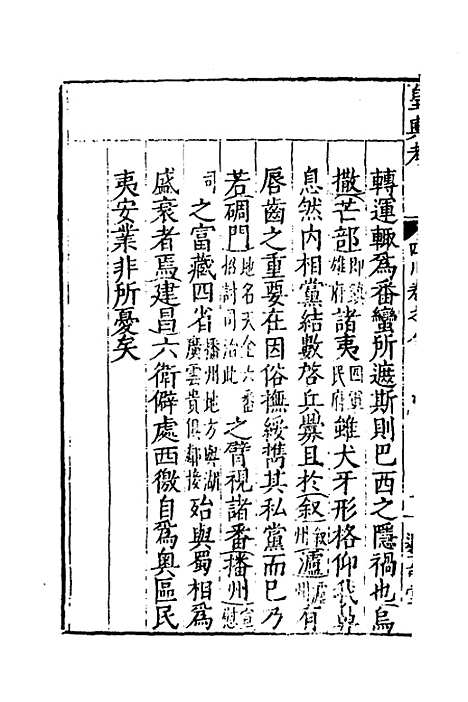 皇輿考
四川卷之八
轉運輒爲番蠻所遮斯則巴西之隱禍也烏
撒芒部卽鎮雄府諸夷四軍民府雖犬牙形格仰我鼻
息然内相黨結數啓兵釁且於叙叙州瀘瀘州有
唇齒之重要在因俗撫綏携其私黨而已乃
若碉門地名天全六番招討司治此之臂視諸番播州宣慰
司之富藏四省播州地方與湖廣雲貴俱鄰接殆與蜀相爲
盛衰者焉建昌六衛僻處西徼自爲奥區民
夷安業非所憂矣